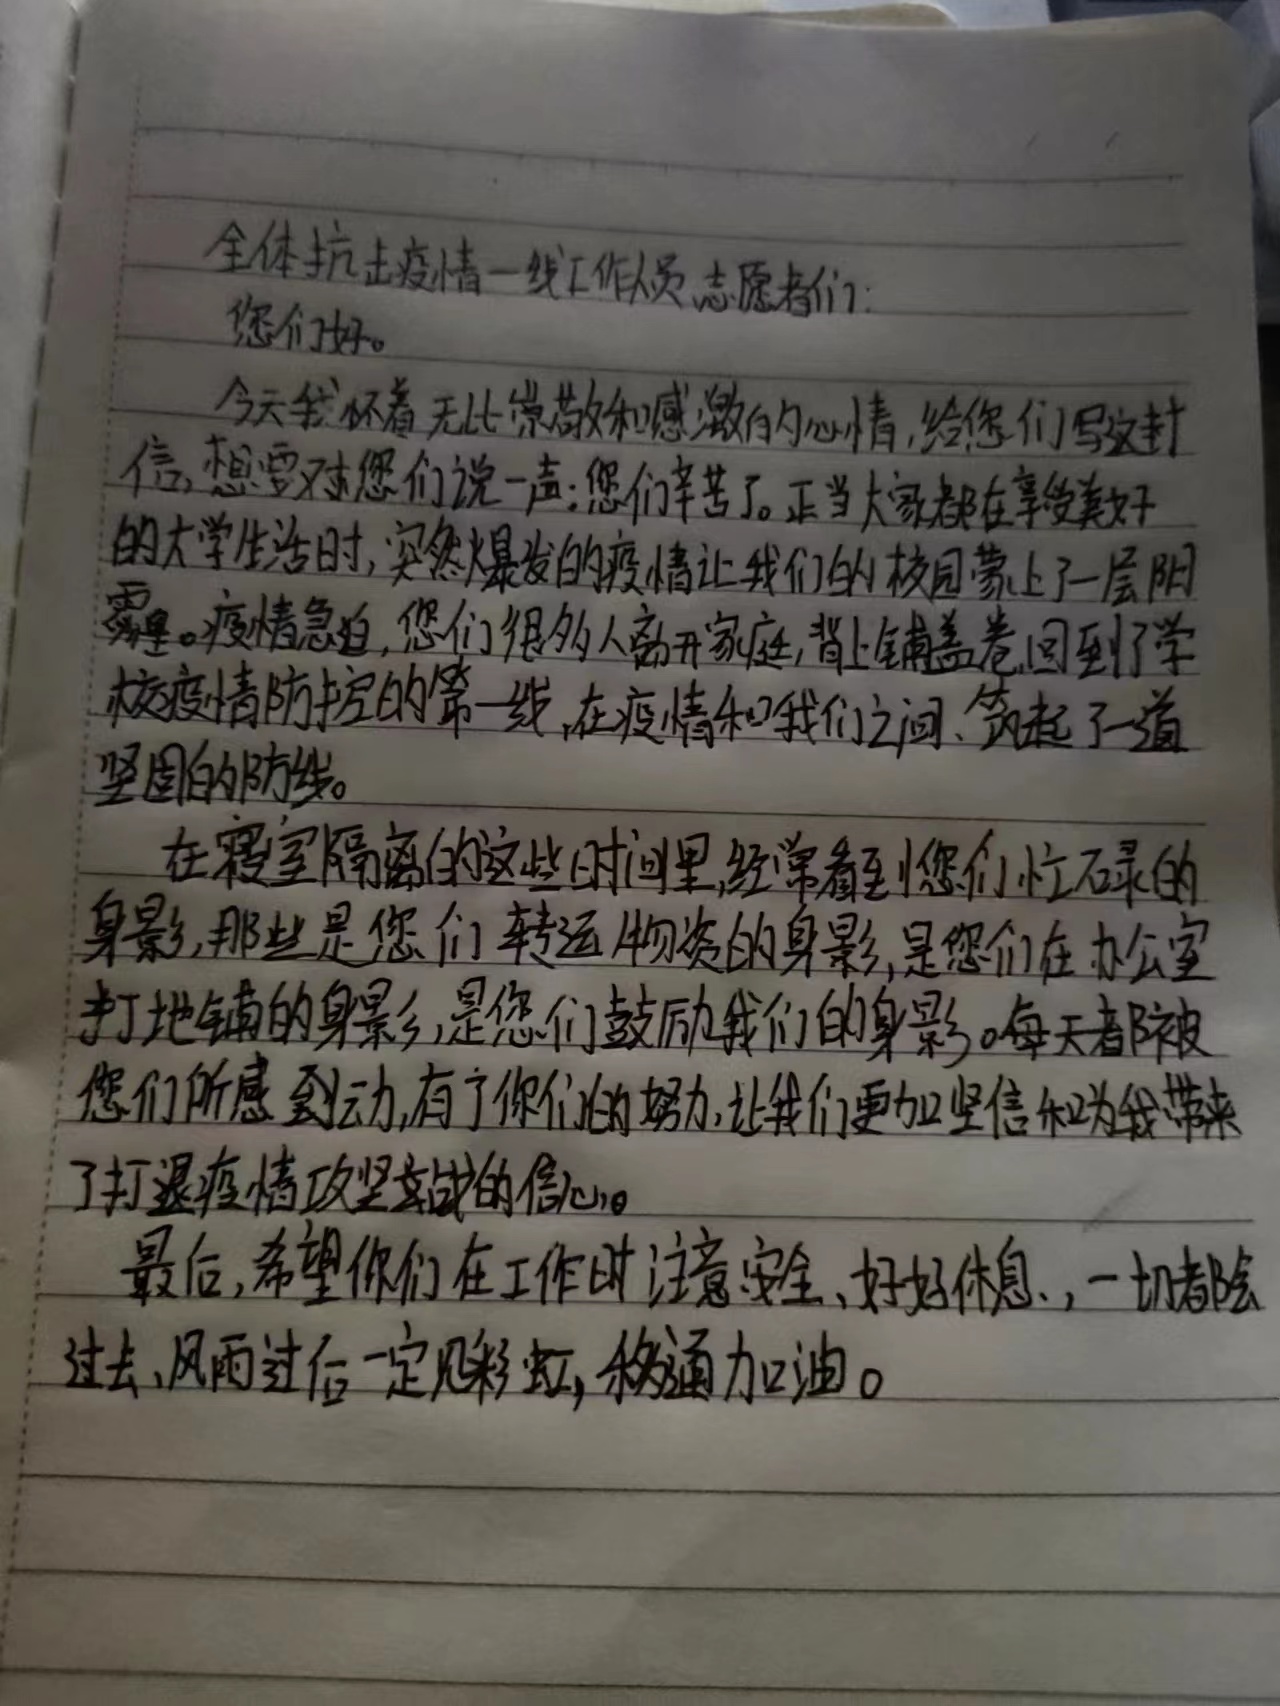 全体抗击疫情一线工作人员、志愿者们:
您们好。
今天我怀着无比崇敬和感激的内心情,给您们写这封
信,想要对您们说一声:您们辛苦了。正当大家都在享受美好
的大学生活时,突然爆发的疫情让我们的校园蒙上了一层阴
霾。疫情急迫,您们很多人离开家庭,背上铺盖卷,回到了学
校疫情防控的第一线,在疫情和我们之间、筑起了一道
坚固的防线。
在寝室隔离的这些时间里,经常看到您们忙碌的
身影,那些是您们转运物资的身影,是您们在办公室
打地铺的身影,是您们鼓励我们的身影。每天都被
您们所感到动,有了你们的努力,让我们更加坚信和为我带来
了打退疫情攻坚战的信心。
最后,希望你们在工作时注意安全、好好休息、,一切都会
过去、风雨过后一定见彩虹,移通加油。